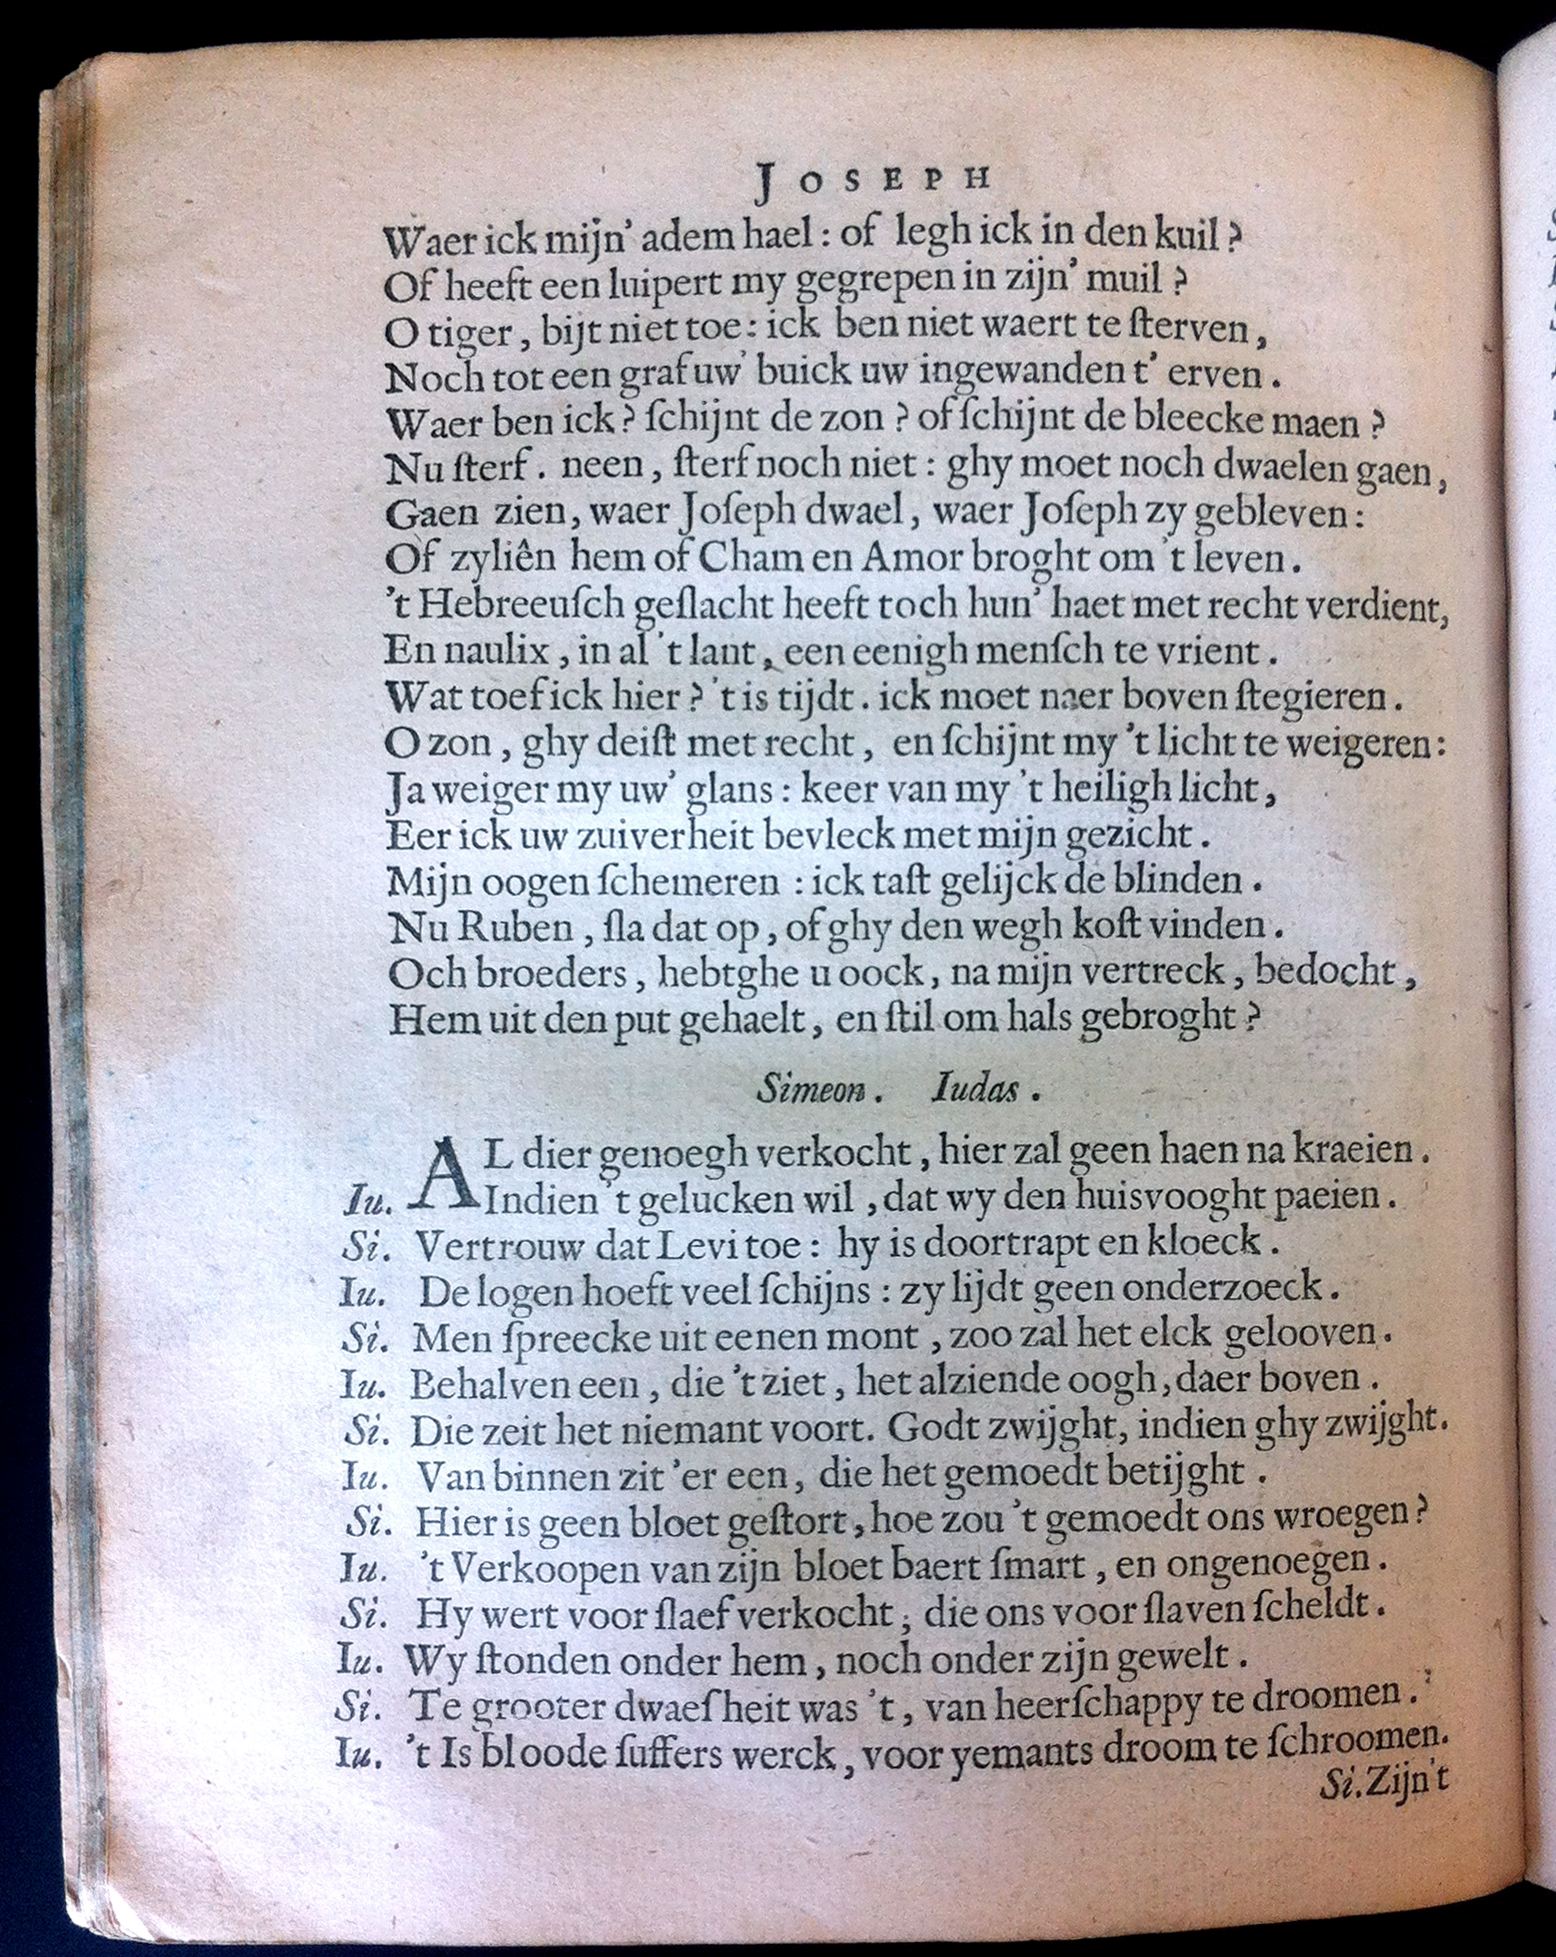 JOSEPH
Waer ick mijn' adem hael: of legh ick in den kuil?
Of heeft een luipert my gegrepen in zijn' muil?
O tiger, bijt niet toe: ick ben niet waert te ſterven,
Noch tot een graf uw' buick uw ingewanden t' erven.
Waer ben ick? ſchijnt de zon? of ſchijnt de bleecke maen?
Nu ſterf. neen, ſterf noch niet: ghy moet noch dwaelen gaen,
Gaen zien, waer Joſeph dwael, waer Joſeph zy gebleven:
Of zyliên hem of Cham en Amor broght om 't leven.
't Hebreeuſch geſlacht heeft toch hun' haet met recht verdient,
En naulix, in al 't lant, een eenigh menſch te vrient.
Wat toef ick hier? 't is tijdt. ick moet naer boven ſtegieren.
O zon, ghy deiſt met recht, en ſchijnt my 't licht te weigeren:
Ja weiger my uw' glans: keer van my 't heiligh licht,
Eer ick uw zuiverheit bevleck met mijn gezicht.
Mijn oogen ſchemeren: ick taſt gelijck de blinden.
Nu Ruben, ſla dat op, of ghy den wegh koſt vinden.
Och broeders, hebtghe u oock, na mijn vertreck, bedocht,
Hem uit den put gehaelt, en ſtil om hals gebroght?
Simeon. Iudas.
AL dier genoegh verkocht, hier zal geen haen na kraeien.
Iu. Indien 't gelucken wil, dat wy den huisvooght paeien.
Si. Vertrouw dat Levi toe: hy is doortrapt en kloeck.
Iu. De logen hoeft veel ſchijns: zy lijdt geen onderzoeck.
Si. Men ſpreecke uit eenen mont, zoo zal het elck gelooven.
Iu. Behalven een, die 't ziet, het alziende oogh, daer boven.
Si. Die zeit het niemant voort. Godt zwijght, indien ghy zwijght.
Iu. Van binnen zit 'er een, die het gemoedt betijght.
Si. Hier is geen bloet geſtort, hoe zou 't gemoedt ons wroegen?
Iu. 't Verkoopen van zijn bloet baert ſmart, en ongenoegen.
Si. Hy wert voor ſlaef verkocht, die ons voor ſlaven ſcheldt.
Iu. Wy ſtonden onder hem, noch onder zijn gewelt.
Si. Te grooter dwaeſheit was 't, van heerſchappy te droomen.
Iu. 't Is bloode ſuffers werck, voor yemants droom te ſchroomen.
Si. Zijn't